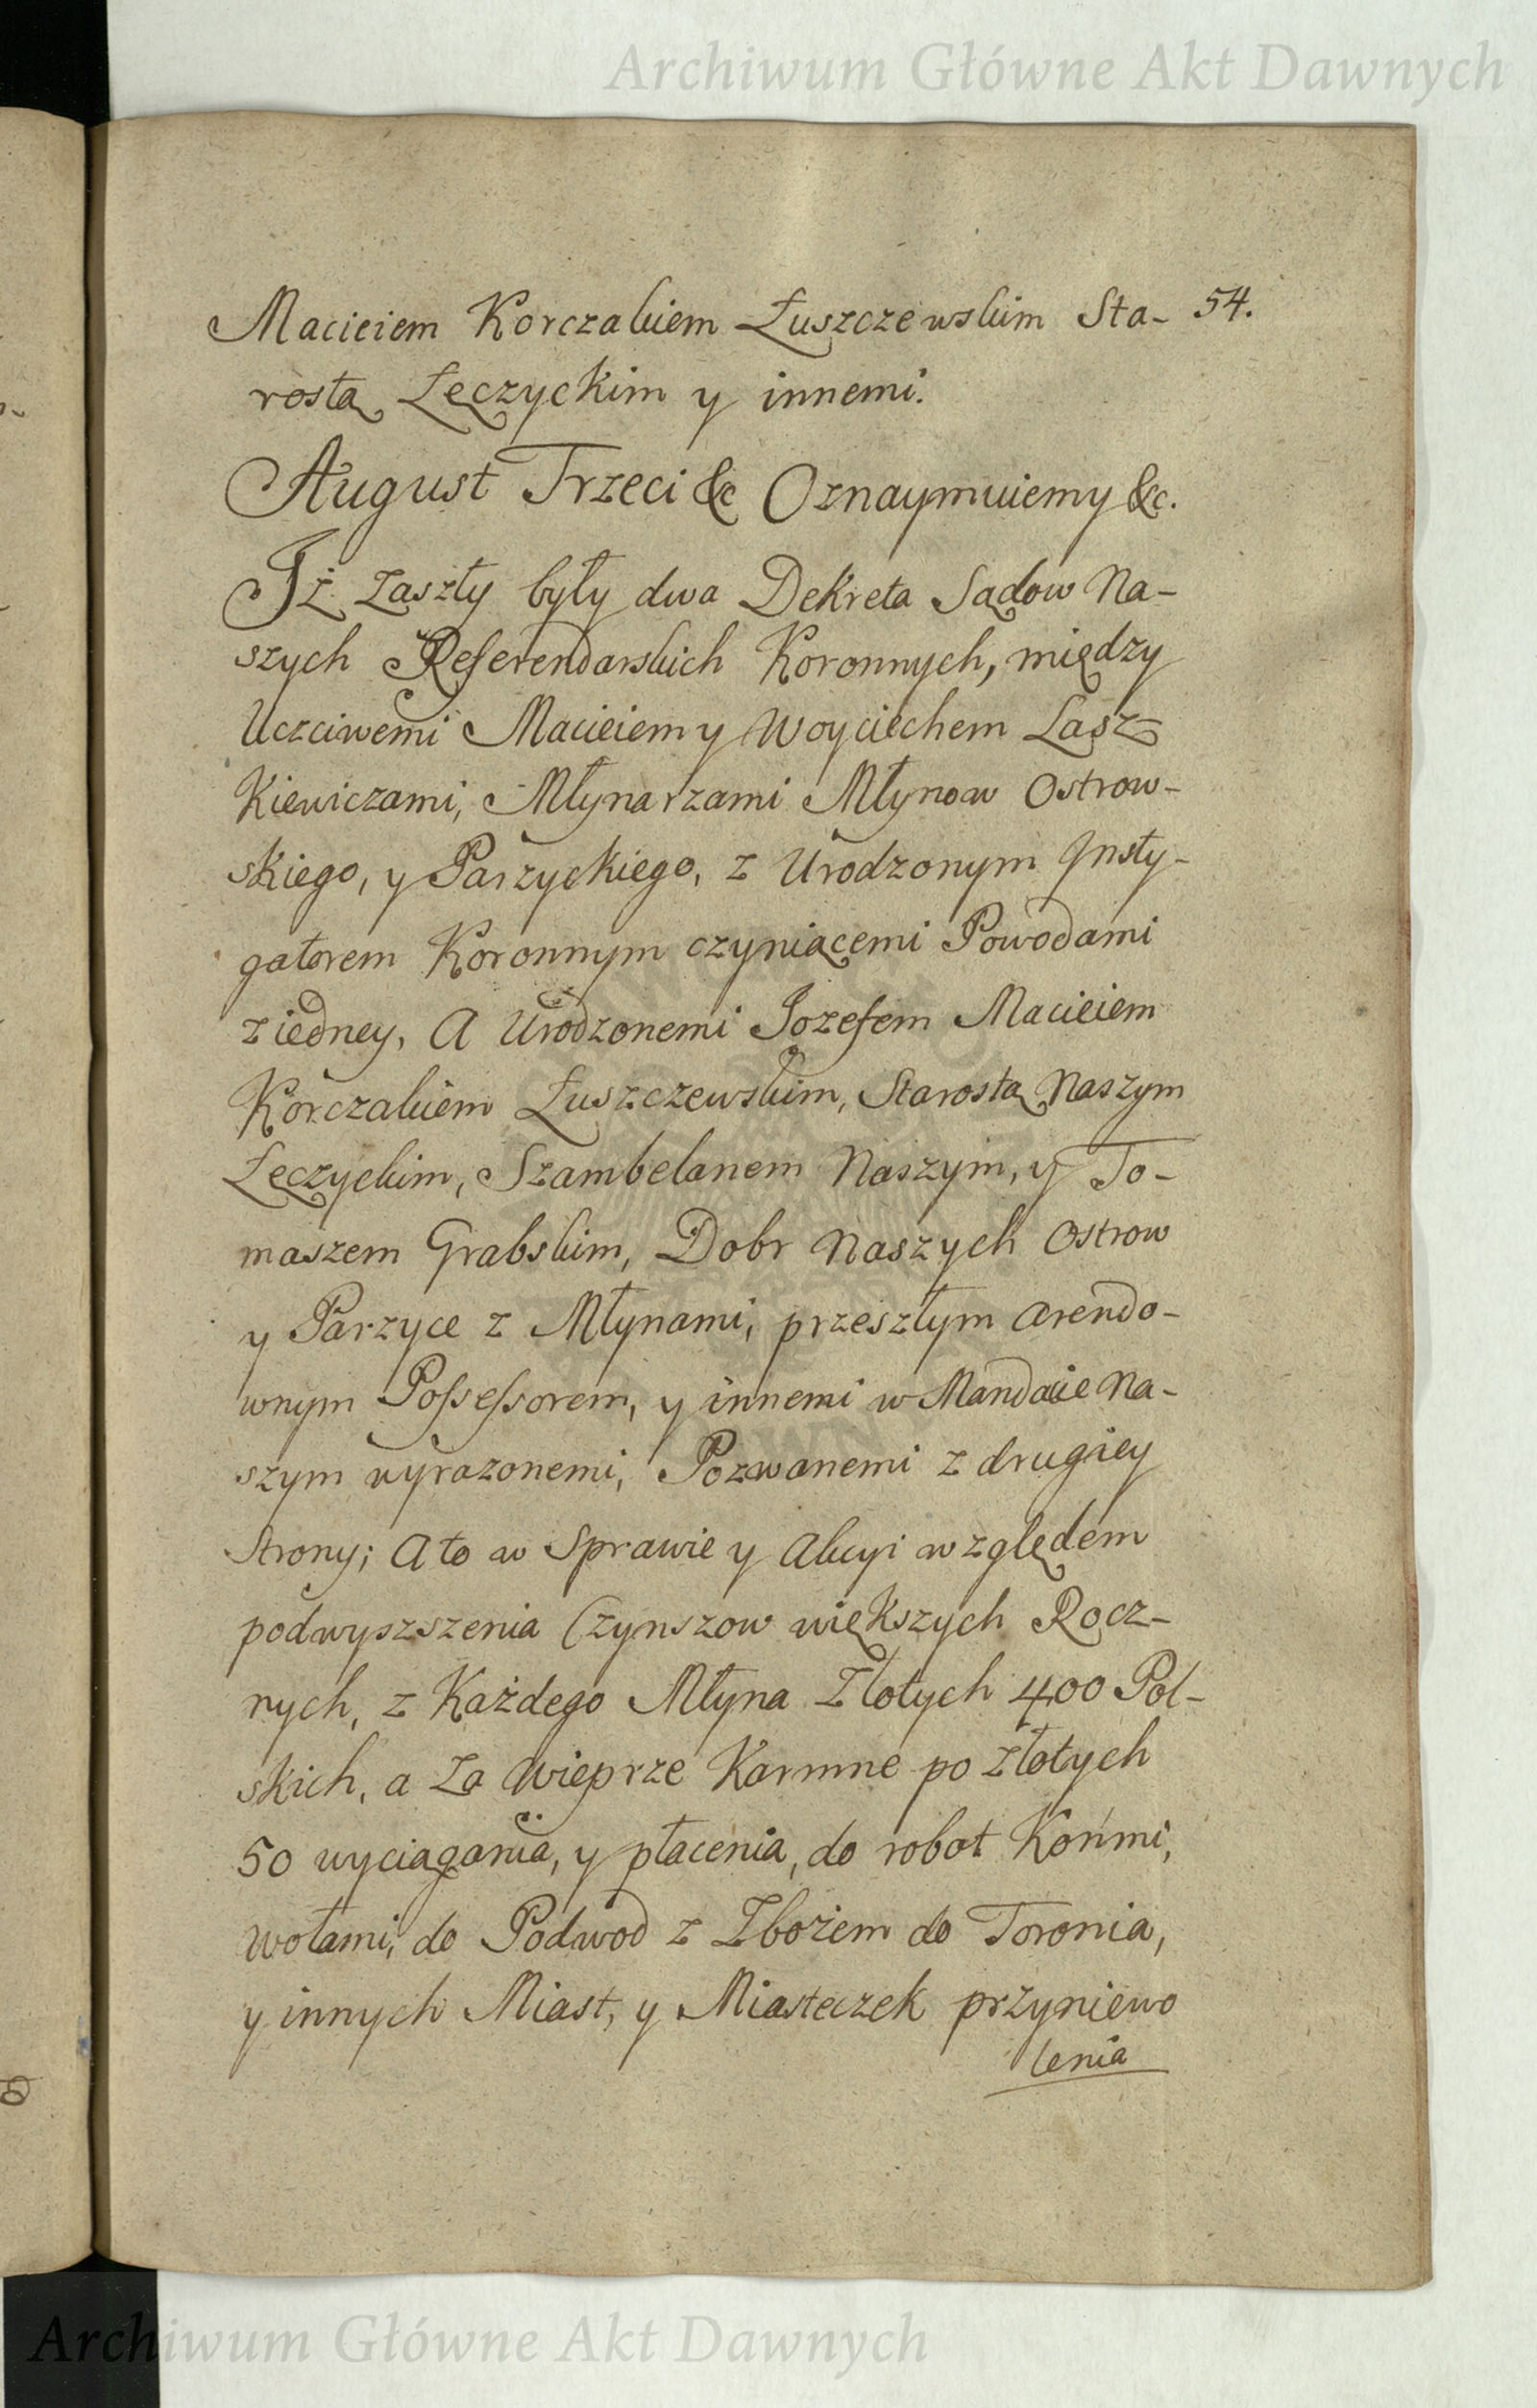 Archiwum Główne Akt Dawnych
Macieiem Korczakiem Łuszczewskim Sta- 54.
rostą Łęczyckim y innemi.
August Trzeci &c Oznaymuiemy &c.
Iż zaszły były dwa Dekreta Sądow Na-
szych Referendarskich Koronnych, między
Uczciwemi Macieiem y Woyciechem Lasz-
kiewiczami, Młynarzami Młynow Ostrow-
skiego, y Parzyckiego, z Urodzonym Insty-
gatorem Koronnym czyniącemi Powodami
z iedney, A Urodzonemi Jozefem Macieiem
Korczakiem Łuszczewskim, Starostą Naszym
Łęczyckim, Szambelanem Naszym, y To-
maszem Grabskim, Dobr Naszych Ostrow
y Parzyce z Młynami, przeszłym Arendo-
wnym Possessorem, y innemi w Mandacie Na-
szym wyrazonemi, Pozwanemi z drugiey
Strony; A to w Sprawie y Akcyi względem
podwyszszenia Czynszow większych Rocz-
nych, z Każdego Młyna Złotych 400 Pol-
skich, a za Wieprze Karmne po Złotych
50 wyciągania, y płacenia, do robot Końmi,
wołami, do Podwod z Zbożem do Toronia,
y innych Miast, y Miasteczek przyniewo
lenia
Archiwum Główne Akt Dawnych